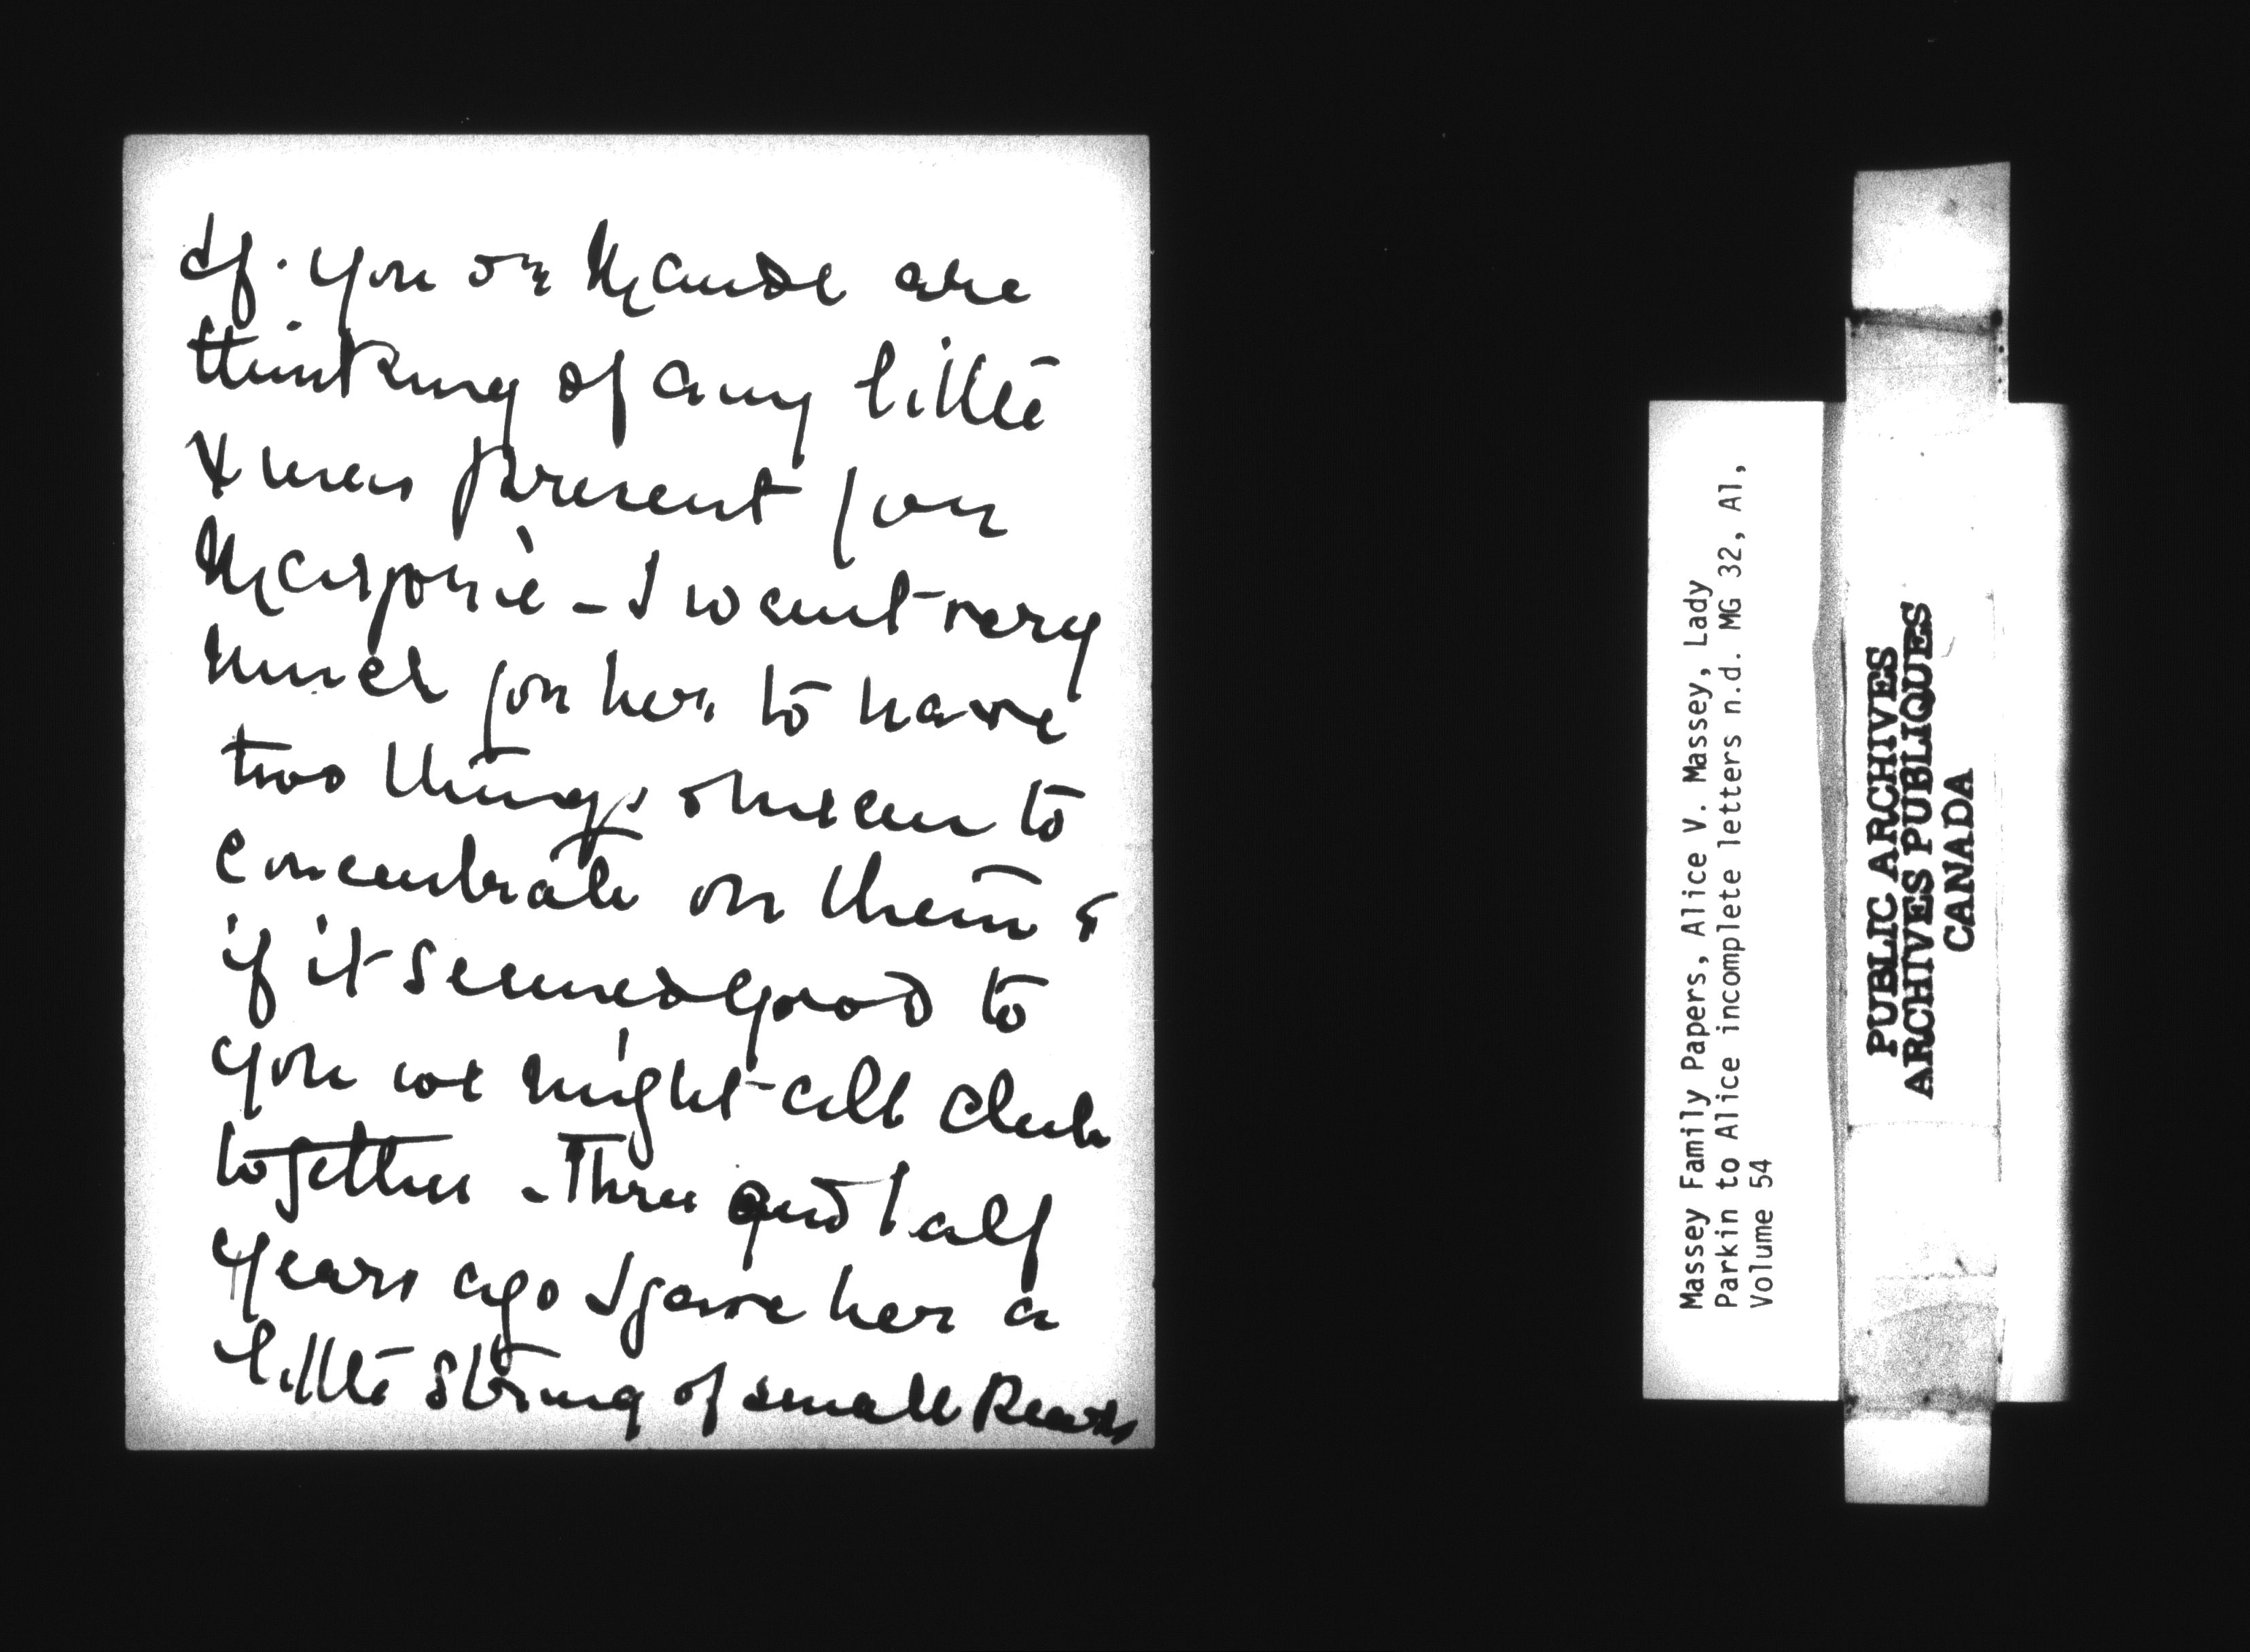 If you or Maude are
thinking of any little
Xmas present for
Marjorie - I want very
much for her to have
two things & mean to
concentrate on them &
if it seemed good to
you we might all club
together - Three and half
years ago I gave her a
little string of small Pearls
Massey Family Papers, Alice V. Massey, Lady
Parkin to Alice incomplete letters n.d. MG 32, A1,
Volume 54
PUBLIC ARCHIVES
ARCHIVES PUBLIQUES
CANADA